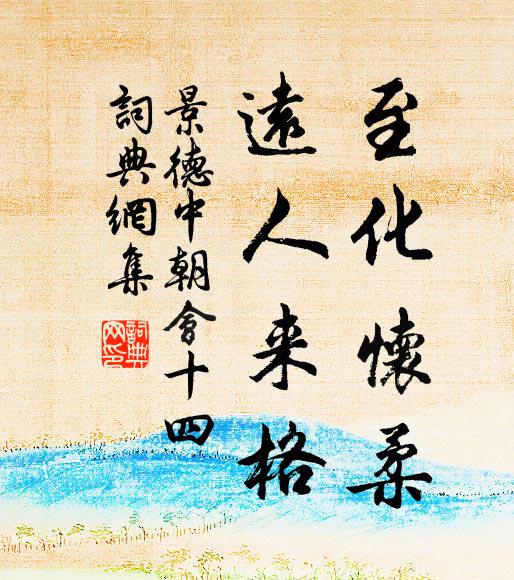 至化懷柔
遠人来格
景德中朝會十四
詞典網集
詞典网印